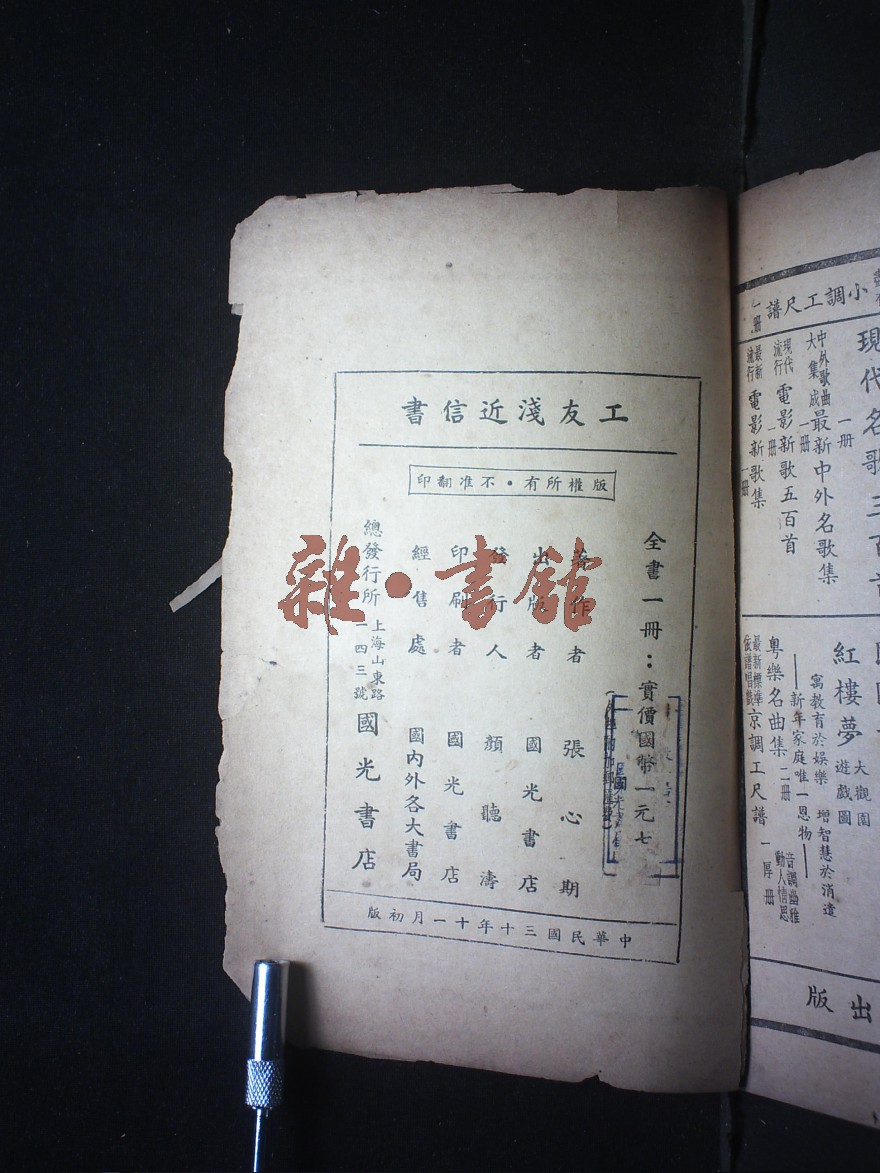 工友淺近信書
版權所有・不准翻印
全書一冊：實價國幣一元七
著作者 張心期
出版者 國光書店
發行人 顏聽濤
印刷者 國光書店
經售處 國內外各大書局
總發行所 上海山東路一四三號 國光書店
中華民國三十年十一月初版
雜・書館
小調工尺譜 一冊
現代名歌三百首
一冊
中外歌曲大集成 最新中外名歌集
一冊
現代流行 電影新歌五百首
一冊
最新流行 電影新歌集
一冊
紅樓夢 大觀園遊戲圖
寓教育於娛樂 增智慧於消遣
新年家庭唯一恩物
粵樂名曲集 二冊
京調工尺譜 一厚冊
出版